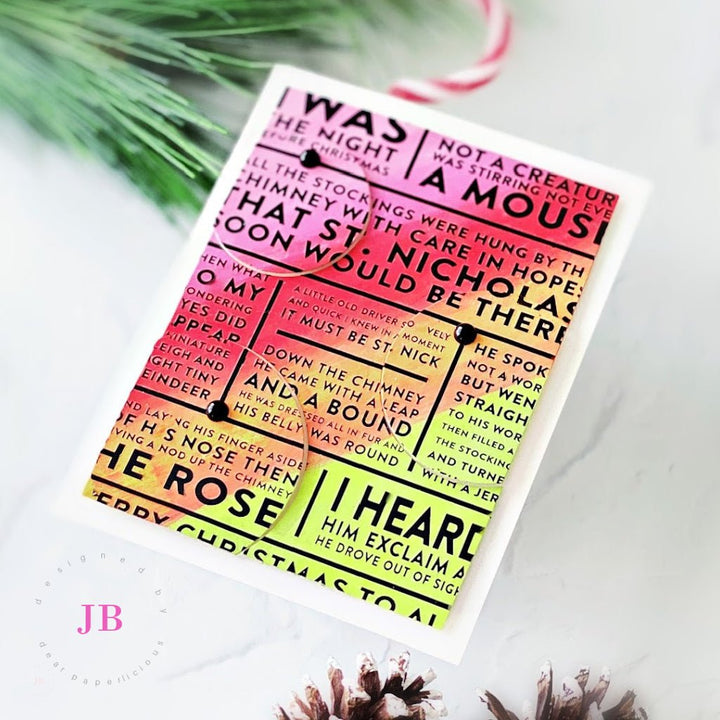 I WAS
THE NIGHT
BEFORE CHRISTMAS
NOT A CREATUR
WAS STIRRING NOT EVE
A MOUSE
ALL THE STOCKINGS WERE HUNG BY TH
CHIMNEY WITH CARE IN HOPES
THAT ST. NICHOLAS
SOON WOULD BE THERE
HEN WHAT
O MY
ONDERING
YES DID
APPEAR
MINIATURE
LEIGH AND
GHT TINY
REINDEER
A LITTLE OLD DRIVER SO
VELY
AND QUICK I KNEW IN A MOMENT
IT MUST BE ST. NICK
DOWN THE CHIMNEY
HE CAME WITH A LEAP
AND A BOUND
HE WAS DRESSED ALL IN FUR AND
HIS BELLY WAS ROUND
HE SPOK
NOT A WOR
BUT WEN
STRAIGH
TO HIS WOR
THEN FILLED A
THE STOCKING
AND TURNE
WITH A JER
AND LAYING HIS FINGER ASIDE
OF HIS NOSE THEN
IVING A NOD UP THE CHIMNEY
HE ROSE
I HEARD
HIM EXCLAIM A
HE DROVE OUT OF SIGH
ERRY CHRISTMAS TO AL
designed by
JB
dear paperlicious
JB